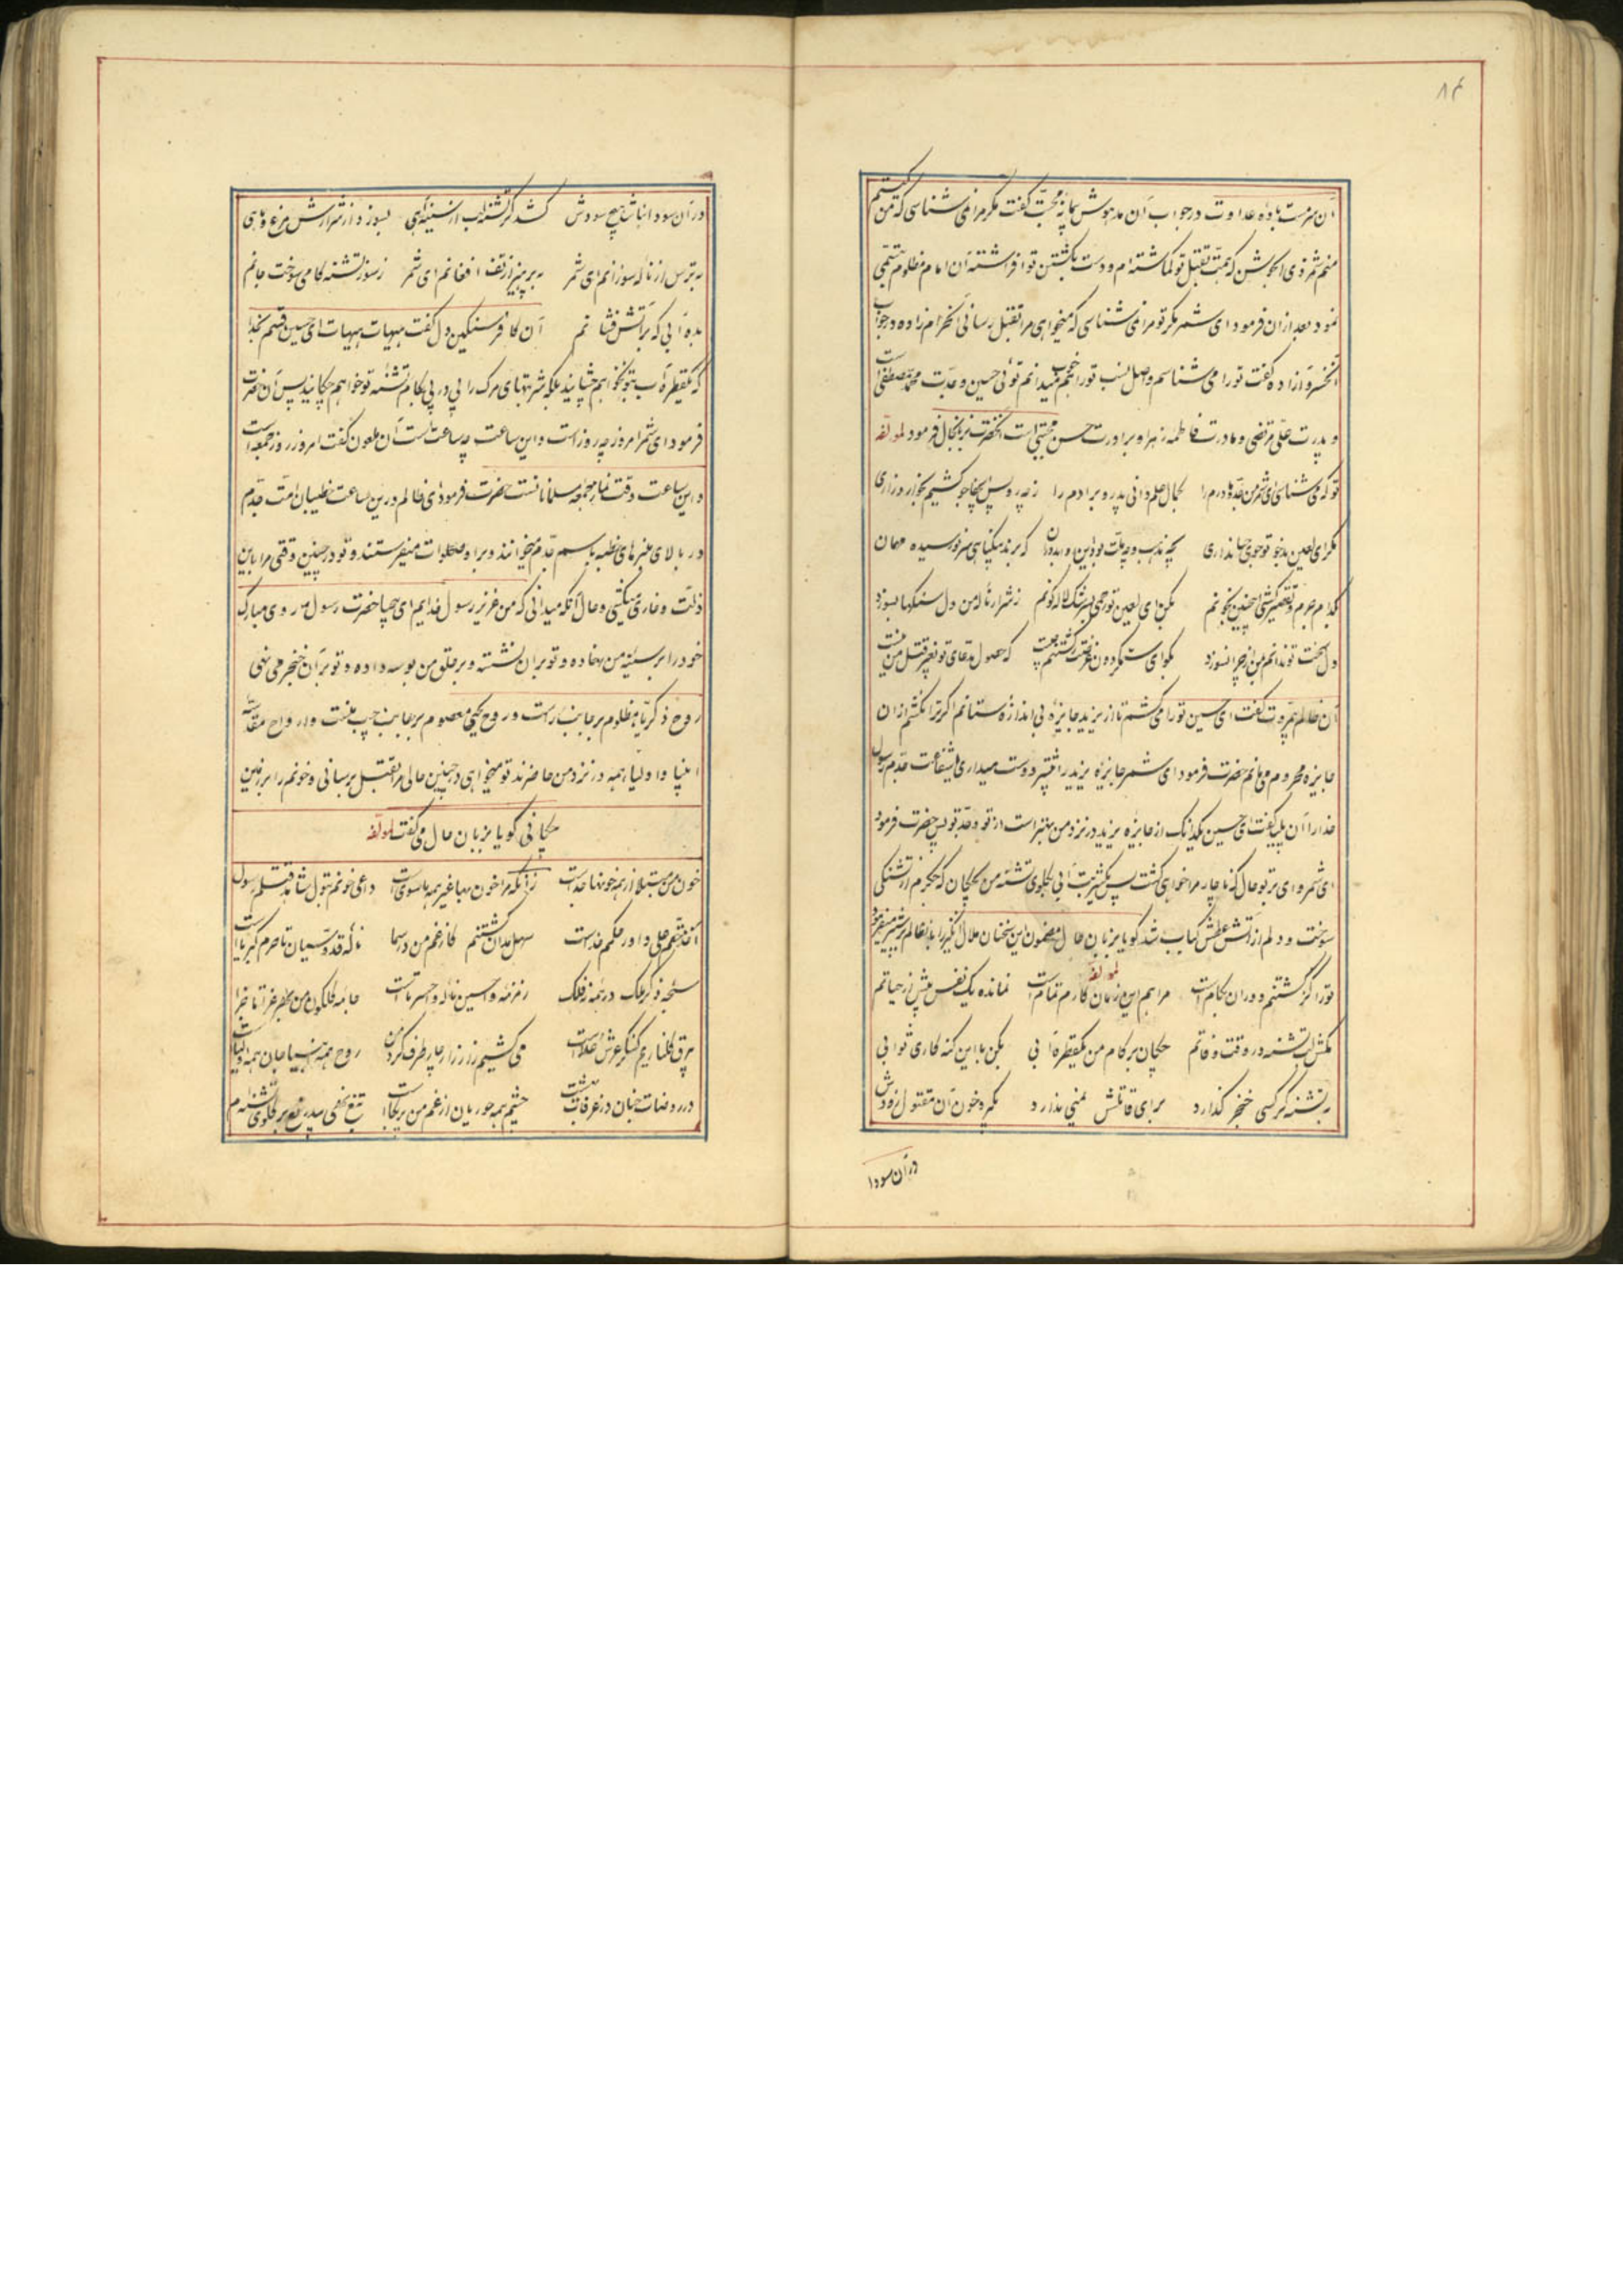 ۸۴
آن سرمست بادهٔ عداوت در جواب آن مدهوش پیمانهٔ محبت گفت مگر مرا نمی شناسی که من کیستم
منم شمر ذی الجوشن که همت بقتل تو گماشته ام و دست بکشتن تو افراشته آن امام مظلوم تبسمی
نمود بعد از آن فرمود ای شمر مگر تو مرا نمی شناسی که میخواهی مرا بقتل رسانی آن حرامزاده در جواب
آن خسرو آزاده گفت تو را می شناسم و اصل نسب تو را خوب میدانم توئی حسین و جدت محمد مصطفی است
و پدرت علی مرتضی و مادرت فاطمه زهرا و برادرت حسن مجتبی است آنحضرت بزبان حال فرمود لمؤلفه
تو که می شناسی ای شمر من جد و مادرم را بکمال علم دانی پدر و برادرم را ز چه رو پس بجا جو کشیم بخواری و زاری
مگر ای لعین بدخو تو جوی حیا نداری بچه مذهب و چه ملت بود این که برند بیگناهی سر نورسیده مهمان
بکدام جرم و تقصیر کشی چنین بخونم بکن ای لعین تو رحمی بسرشک لاله گونم ز شرار نالهٔ من دل سنگها بسوزد
دل سخت تو ندانم من از چرا نسوزد بگو ای ستمگر دون غرضت ز کشتنم چیست که حصول مدعای تو بغیر قتل من نیست
آن ظالم بیمروت گفت ای حسین تو را می کشم تا از یزید جایزهٔ بی اندازه ستانم اگر ترا نکشم از آن
جایزه محروم می مانم حضرت فرمود ای شمر جایزه یزید را بیشتر دوست میداری یا شفاعت جدم رسول
خدا را آن پلید گفت ای حسین یکدانک از جایزه یزید در نزد من بهتر است از تو و جد تو پس حضرت فرمود
ای شمر وای بر تو حال که ناچار مرا خواهی کشت پس یکشربت آبی بگلوی تشنه من بچکان که جگرم از تشنگی
سوخت و دلم از آتش عطش کباب شد گویا بزبان حال مضمون این سخنان ملال انگیز را بآن ظالم
لمؤلفه
تو را گر کشتنم دوران بکام است مرا هم این زمان کارم تمام است نمانده یک نفس بیش از حیاتم
مکش لب تشنه در وقت وفاتم بچکان بر کام من یکقطره آبی بکن با این گنه کاری ثوابی
لب تشنه گر کسی خنجر گذارد برای قاتلش یمنی ندارد بگیرد خون آن مقتول زودش
در آن سودا
در آن سودا نباشد هیچ سودش کشد گر تشنه لب از سینه آهی بسوزد از شرارش مرغ و ماهی
بترس از نالهٔ سوزانم ای شمر بپرهیز از تف افغانم ای شمر ز سوز تشنه کامی سوخت جانم
بده آبی که بر آتش فشانم آن کافر سنگین دل گفت هیهات هیهات ای حسین قسم بخدا
که یکقطره آب بتو نخواهم چشانید بلکه شربتهای مرگ را پی در پی بکام تشنه تو خواهم چکانید پس آن حضرت
فرمود ای شمر امروز چه روز است و این ساعت چه ساعت است آن ملعون گفت امروز روز جمعه است
و این ساعت وقت نماز جمعه مسلمانانست حضرت فرمود ای ظالم در این ساعت خطیبان امت جدم
در بالای منبرهای خطبه باسم جدم میخوانند و براه صلوات میفرستند و تو در چنین وقتی مرا باین
ذلت و خاری میکشی و حال آنکه میدانی که من عزیز رسول خدایم ای بیحیا حضرت رسول روی مبارک
خود را بر سینهٔ من نهاده و تو بر آن نشسته و بر حلق من بوسه داده و تو بر آن خنجر می نهی
روح ذکریای مظلوم بر جانب راست و روح یحیی معصوم بر جانب چپ منست و ارواح مقدسه
انبیا و اولیا همه در نزد من حاضرند تو میخواهی در چنین حالی مرا بقتل برسانی و خونم را بر زمین
بچکانی گویا بزبان حال می گفت لمؤلفه
خون من مبتلا از همه خونها جداست زانکه مرا خون بها غیر همه ماسوی است داعی خونم بتول شاهد قتلم رسول
منتقم علی داور حکمم خداست سهل مدان کشتنم کز غم من در سما نالهٔ قدوسیان تا حرم کبریا است
سبحه ذکر ملک در همه نه فلک زمزمه وا حسین ناله وا حسرتا است
برق کنگر عرش علاست می کشیم زار زار چار طرف گرد من روح همه انبیا جان همه اولیا است
در روضات جنان در غرفات بهشت چشم همه حوریان از غم من پر بکا است تیغ نهی بیدریغ بر گلوی تشنه ام